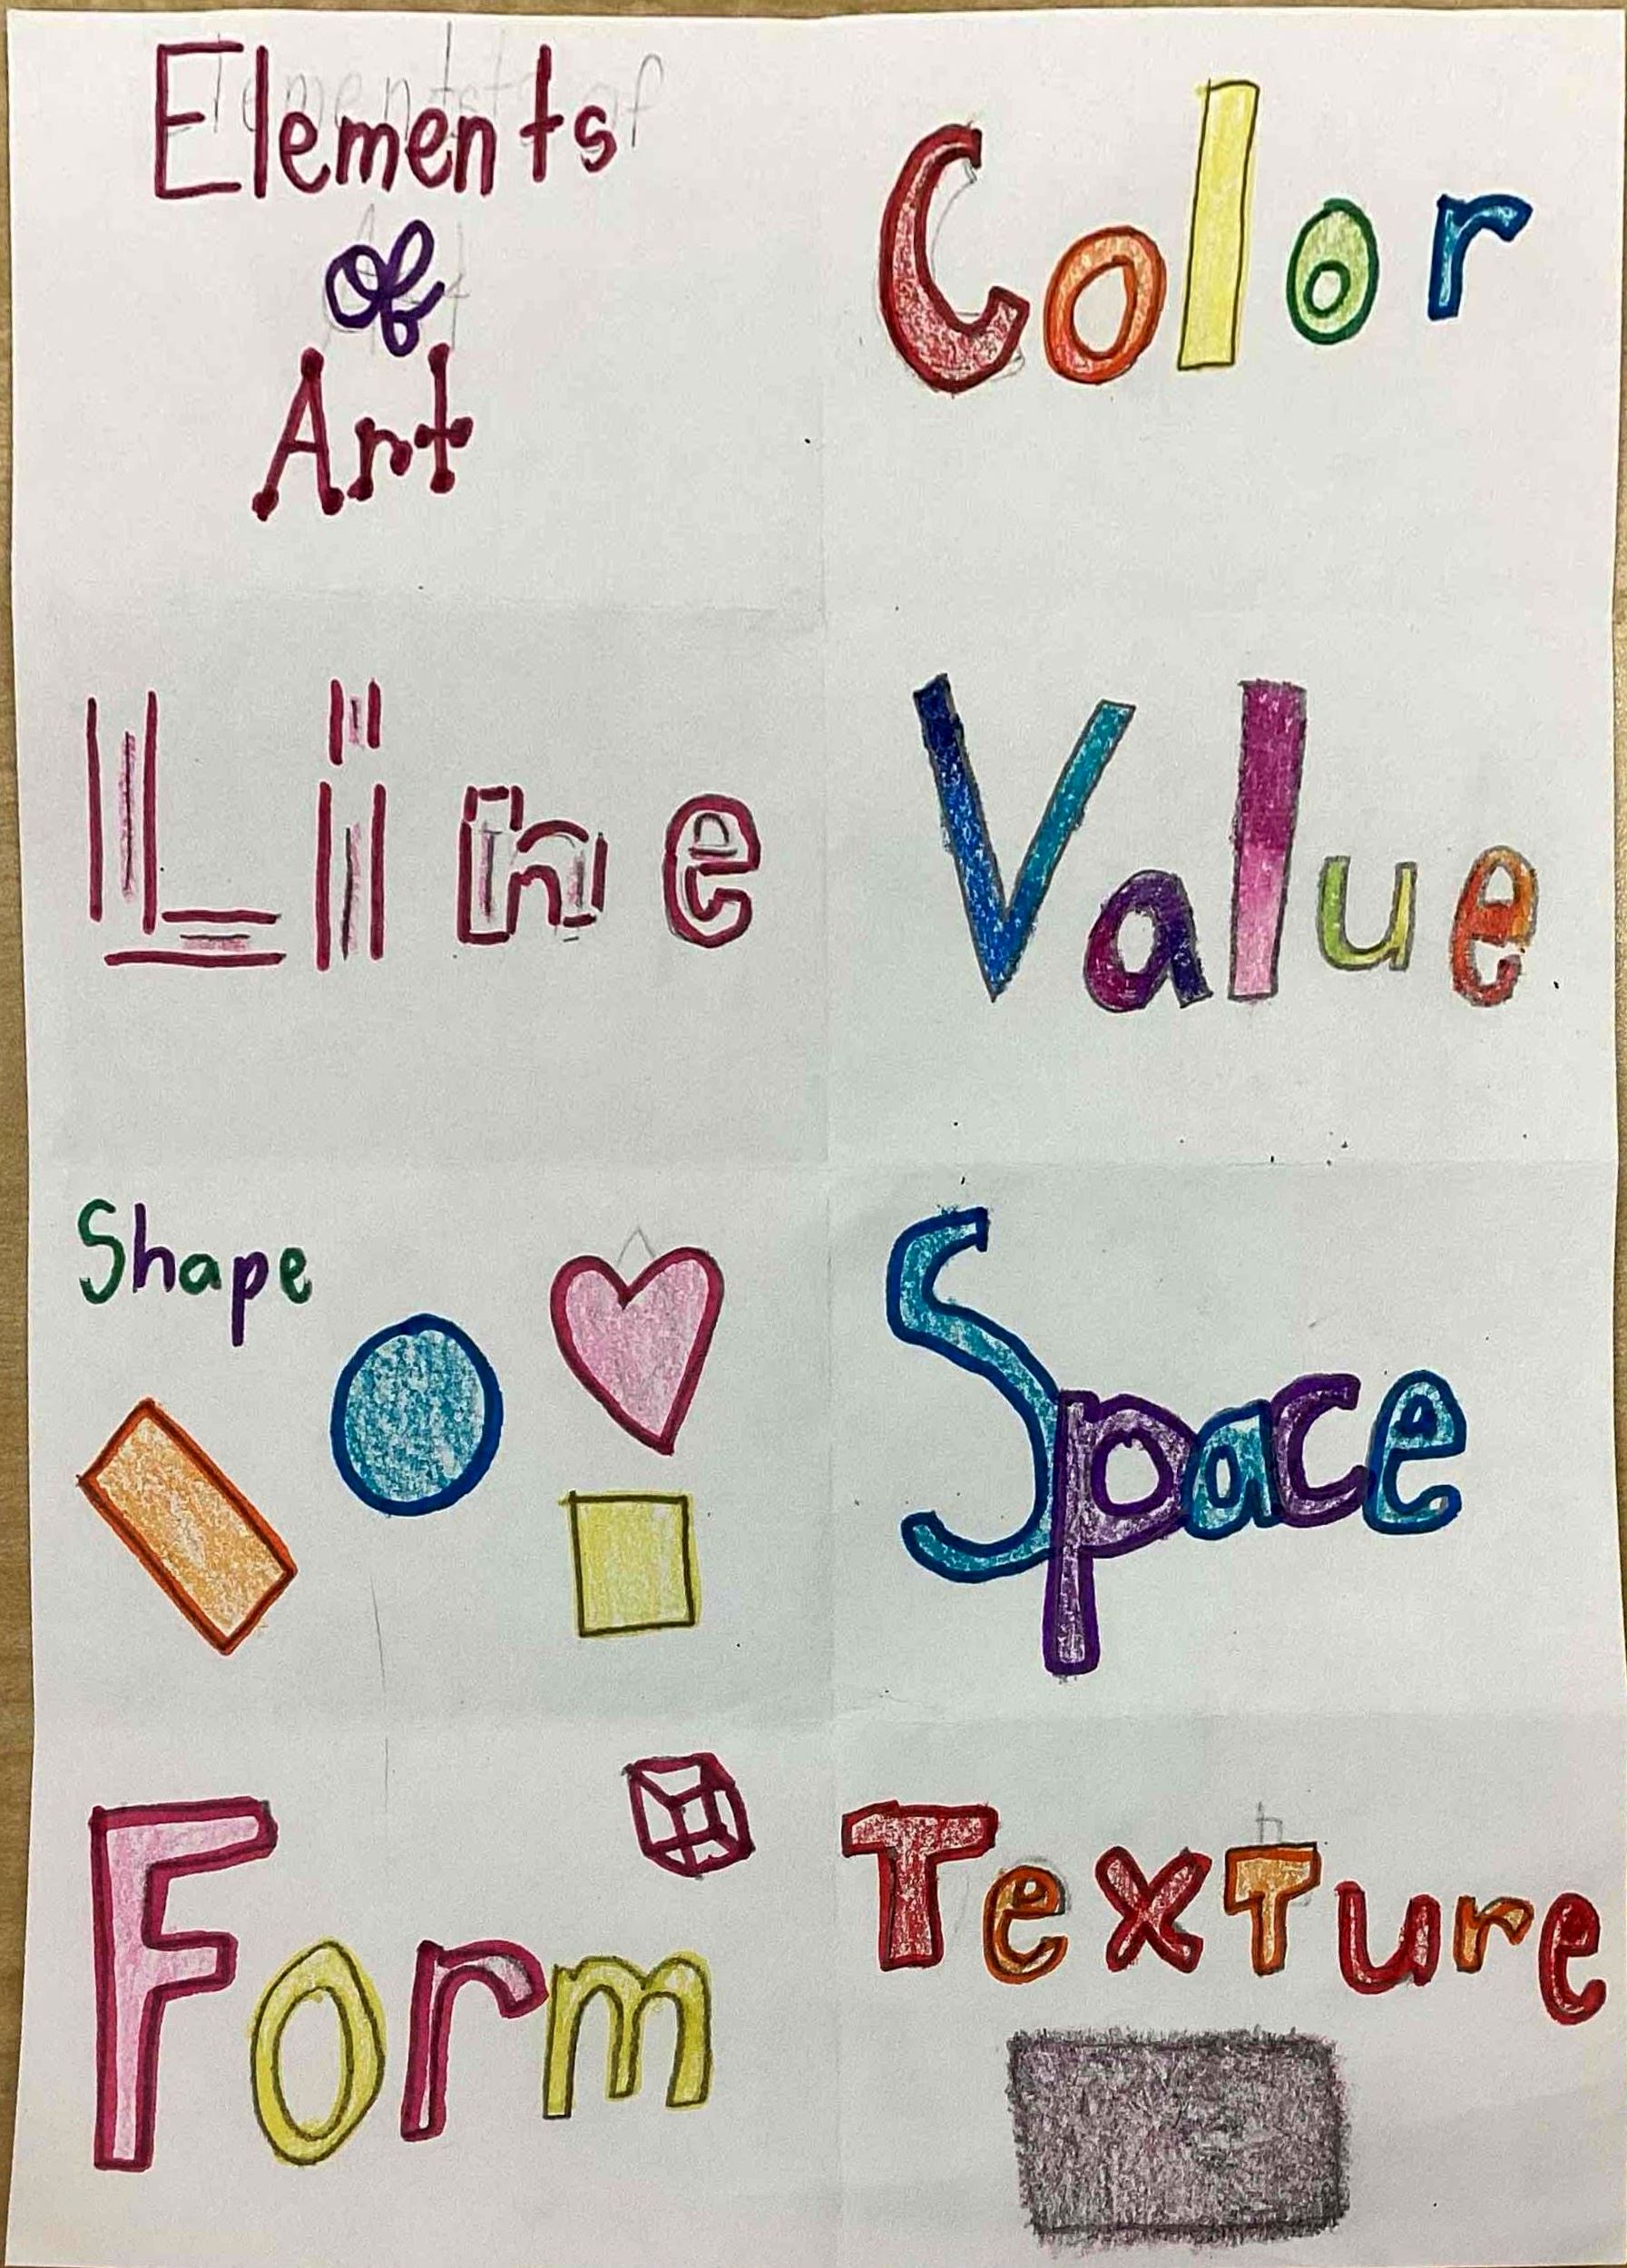 Elements
of
Art
Color
Line
Value
Shape
Space
Form
Texture